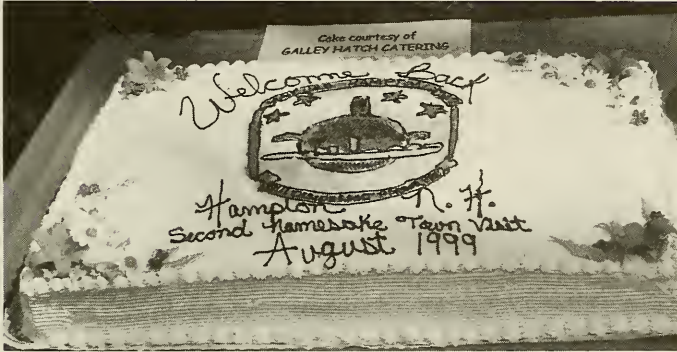 Cake courtesy of
GALLEY HATCH CATERING
Welcome Back
Hampton N.H.
Second Namesake Town Visit
August 1999